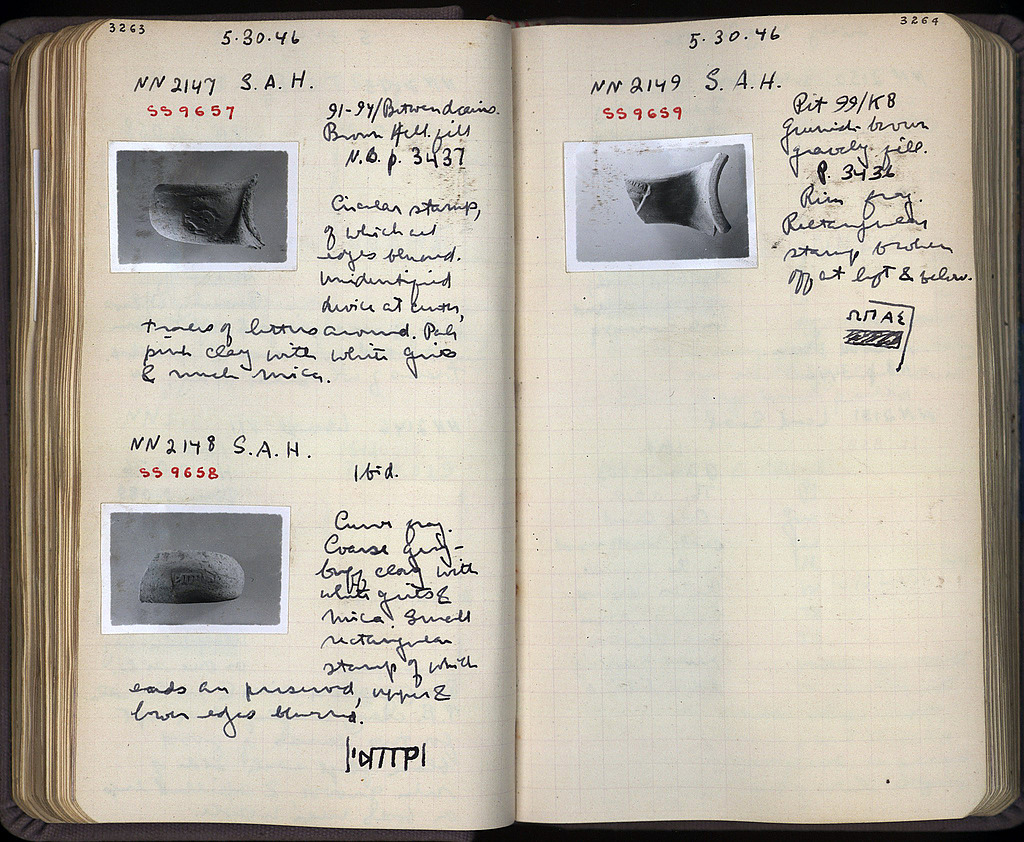 3263
5·30·46
NN 2147 S.A.H.
SS 9657
91-94/Between drains.
Brown Hell. fill
N.B. p. 3437
Circular stamp,
of which all
edges blurred.
Unidentified
device at center,
traces of letters around. Pale
pink clay with white grits
& much mica.
NN 2148 S.A.H.
SS 9658
Ibid.
Curve frag.
Coarse grey-
buff clay with
white grits &
mica. Small
rectangular
stamp of which
ends are preserved, upper &
lower edges blurred.
3264
5·30·46
NN 2149 S.A.H.
SS 9659
Pit 99/KB
Greenish brown
gravelly fill.
P. 3436
Rim frag.
Rectangular
stamp broken
off at left & below.
ΩΠΑΣ